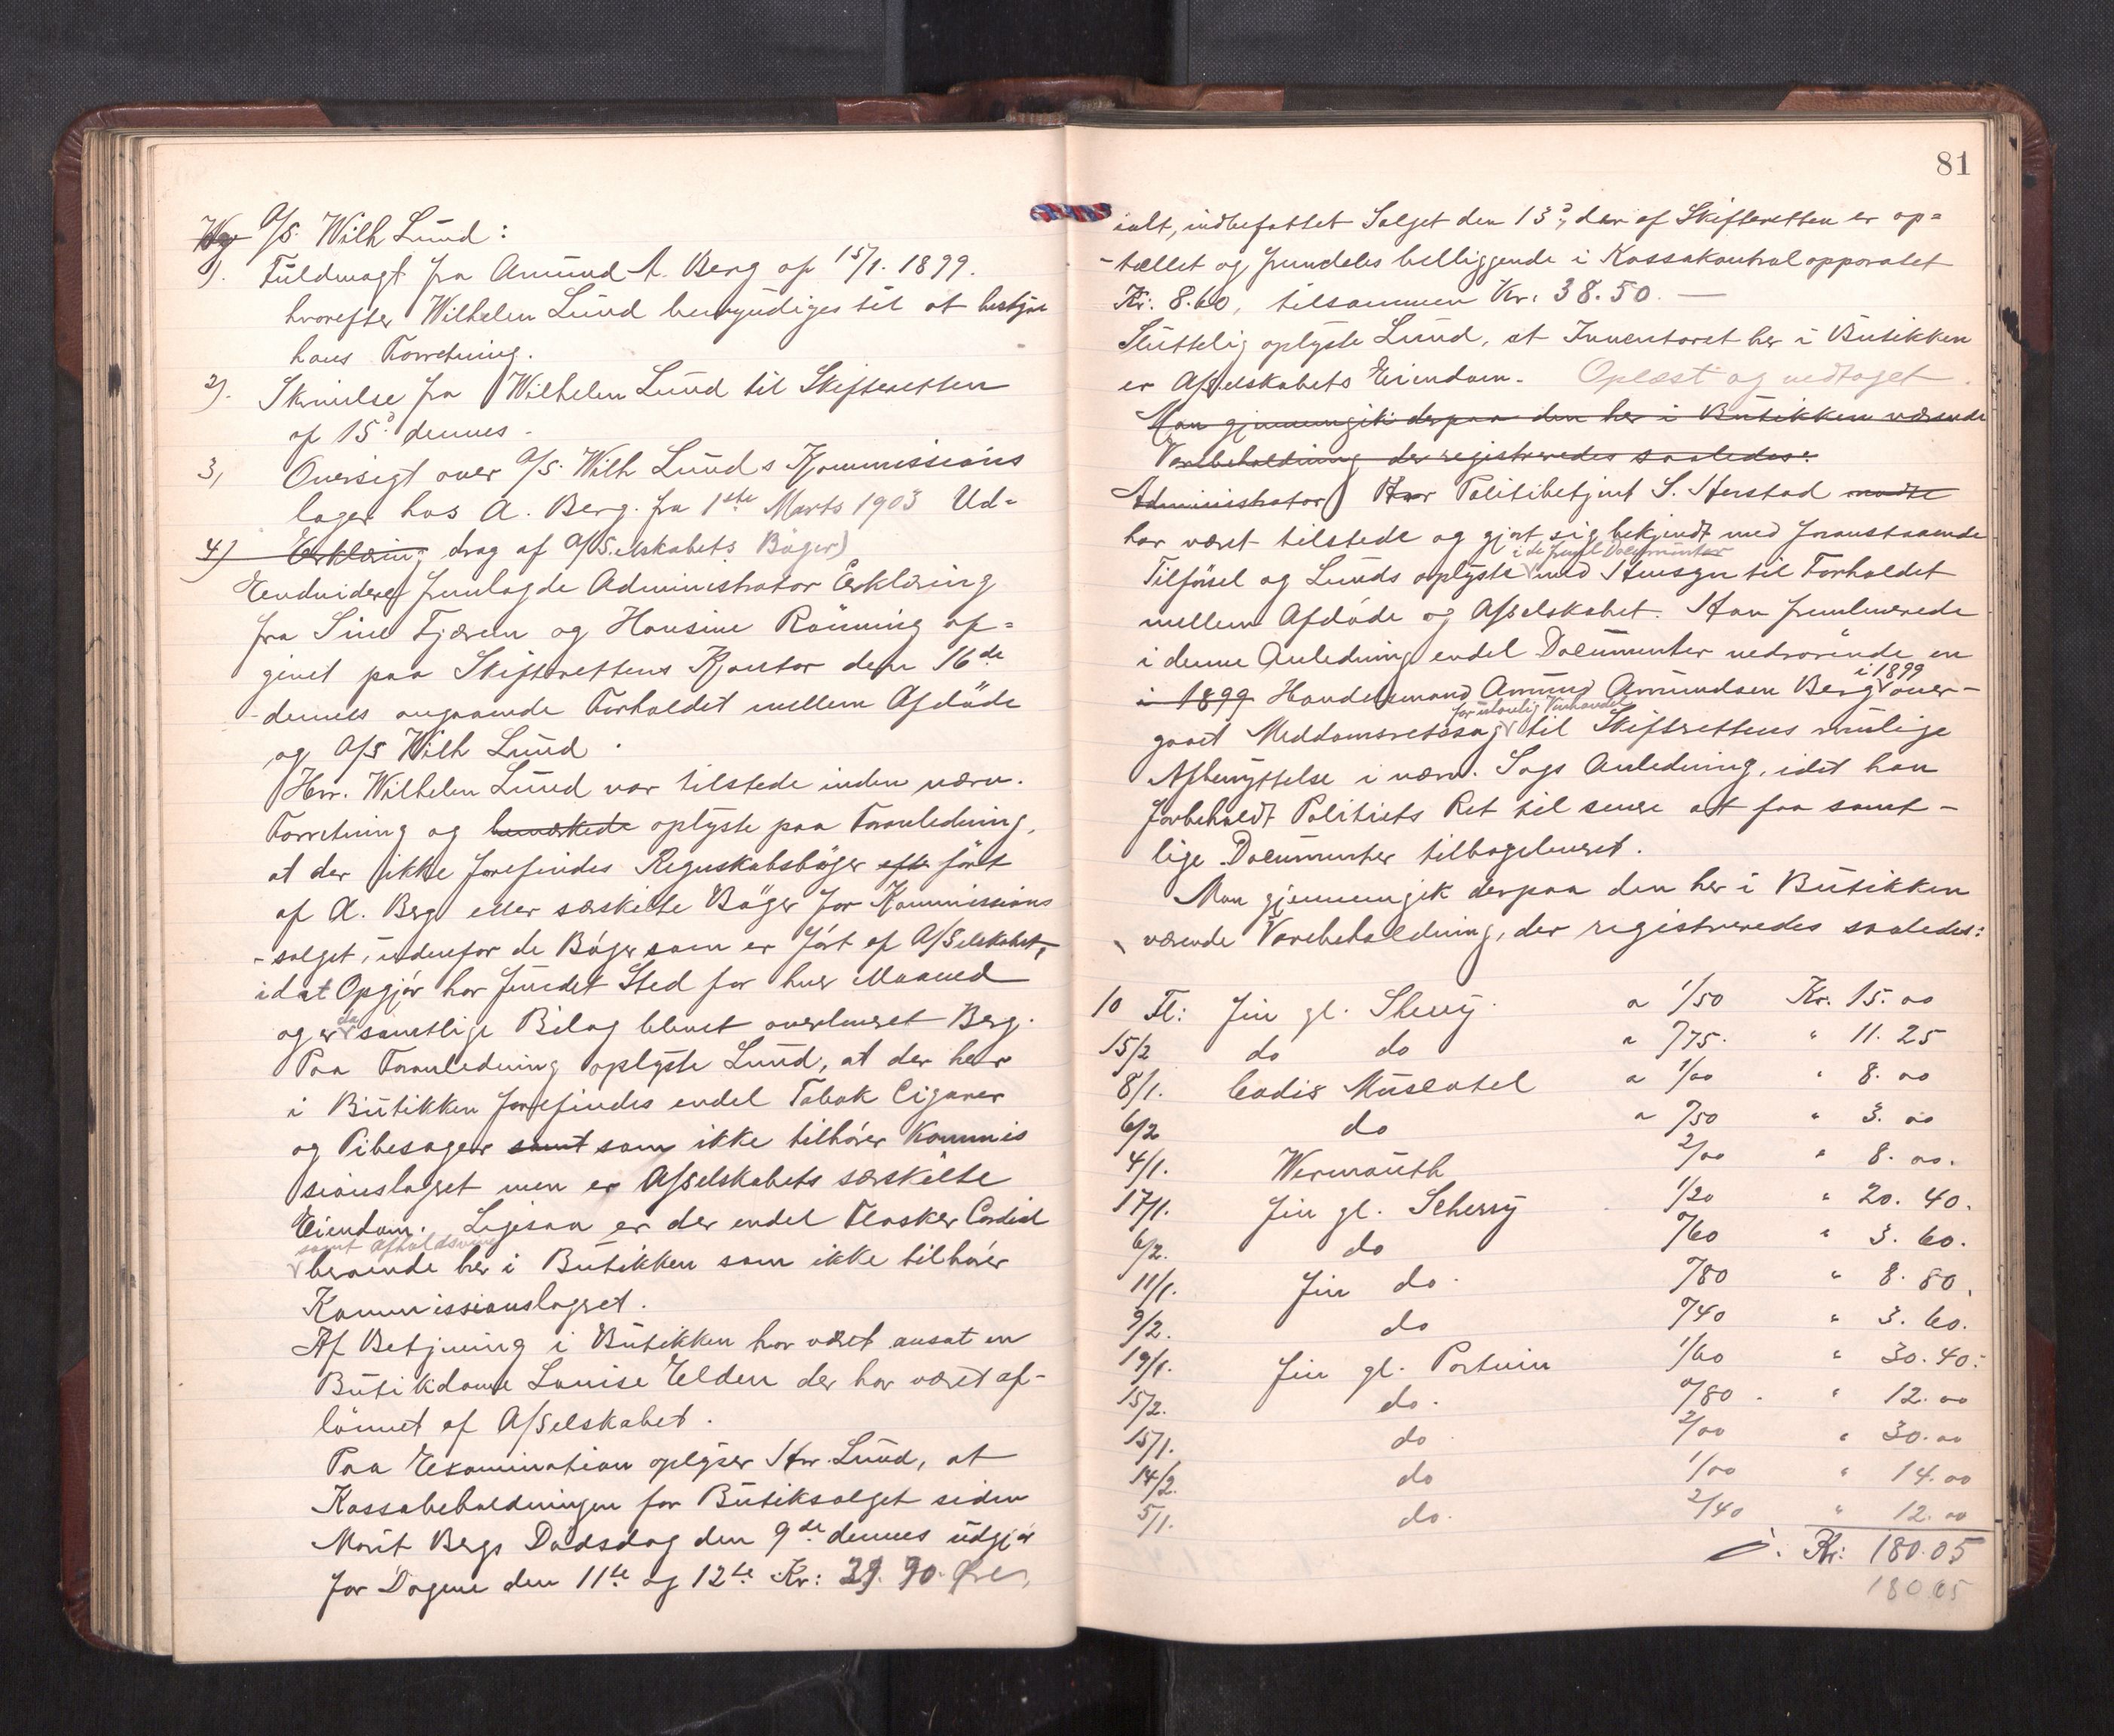 A/S. Wilh Lund:
1). Fuldmagt fra Amund A. Berg af 15/1. 1899.
hvorefter Wilhelm Lund bemyndiges til at bestyre
hans Forretning.
2). Skrivelse fra Wilhelm Lund til Skifteretten
af 15d dennes.
3, Oversigt over A/S. Wilh Lunds Kommissions
lager hos A. Berg. fra 1ste Marts 1903 Ud=
4) Erklæring drag af A/Selskabets Bøger)
Endvidere fremlagde Administrator Erklæring
fra Sine Fjærem og Hansine Rönning af=
givet paa Skifterettens Kontor den 16de
dennes angaaende Forholdet mellem Afdöde
og A/S Wilh Lund.
Hrr. Wilhelm Lund var tilstede inden nærv.
Forretning og bemærkede oplyste paa Foranledning,
at der ikke forefindes Regnskabsböger efter fört
af A. Berg eller særskilte Böger for Kommissions
-salget, udenfor de Böger som er fört af A/Selskabet,
idet Opgjör har fundet Sted for hver Maaned
og er da samtlige Bilag blevet overleveret Berg.
Paa Foranledning oplyste Lund, at der her
i Butikken forefindes endel Tobak Cigarer
og Pibesager samt som ikke tilhører Kommis
sionslagret men er A/Selskabets særskilte
Eiendom. Ligesaa er der endel Flasker Cordial
samt Afholdsvine
beroende her i Butikken som ikke tilhører
Kommissionslagret.
Af Betjening i Butikken har været ansat en
Butikdame Louise Elden der har været af-
lönnet af A/Selskabet.
Paa Examination oplyser Hrr. Lund, at
Kassabeholdningen for Butiksalget siden
Marit Bergs Dödsdag den 9de dennes udgjör
for Dagene den 11te og 12te Kr: 29. 90. Øre,
81
ialt, indbefattet Salget den 13d, der af Skifteretten er op=
-tællet og fremdeles beliggende i Kassakontrolapparatet
Kr. 8.60, tilsammen Kr. 38.50. —
Sluttelig oplyste Lund, at Inventaret her i Butikken
er A/Selskabets Eiendom. Oplæst og vedtaget.
Man gjennemgik derpaa den her i Butikken værende
Varebeholdning der registreredes saaledes:
Administrator Hrr Politibetjent S. Herstad mødte
har været tilstede og gjort sig bekjendt med foranstaaende
i de freml Documenter
Tilförsel og Lunds oplyste med Hensyn til Forholdet
mellem Afdöde og A/Selskabet. Han fremleverede
i denne Anledning endel Documenter vedrörende en
i 1899 Handelsmand Amund Amundsen Berg i 1899 over-
for ulovlig Vinhandel
gaaet Meddomsretssag til Skifterettens mulige
Afbenyttelse i nærv. Sags Anledning, idet han
forbeholdt Politiets Ret til senere at faa samt-
lige Documenter tilbageleveret.
Man gjennemgik derpaa den her i Butikken
værende Varebeholdning, der registreredes saaledes:
10 Fl: fin gl. Sherry. a 1/50 Kr. 15. 00
15/2 do do a 0/75. " 11. 25
8/1. Cadis Muscatel a 1/00 " 8. 00
6/2 do a 0/50 " 3. 00
4/1. Wermouth 2/00 " 8. 00.
17/1. fin gl. Scherry 1/20 " 20. 40.
6/2. do 0/60 " 3. 60.
11/1. fin do. 0/80 " 8. 80.
9/2. do 0/40 " 3. 60.
19/1. fin gl. Portvin 1/60 " 30. 40.
15/2. do. 0/80. " 12. 00
15/1. do 2/00 " 30. 00
14/2. do 1/00 " 14. 00
5/1. do. 2/40 " 12. 00
Kr: 180.05
180.05